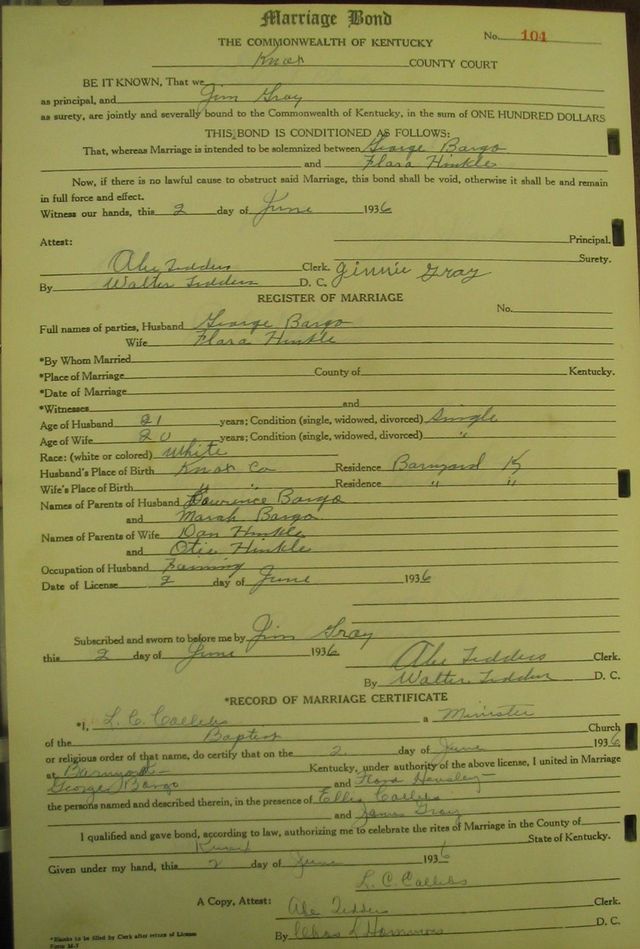 Marriage Bond
No. 101
THE COMMONWEALTH OF KENTUCKY
Knox COUNTY COURT
BE IT KNOWN, That we
as principal, and Jim Gray
as surety, are jointly and severally bound to the Commonwealth of Kentucky, in the sum of ONE HUNDRED DOLLARS
THIS BOND IS CONDITIONED AS FOLLOWS:
That, whereas Marriage is intended to be solemnized between George Bargo
and Flara Hinkle
Now, if there is no lawful cause to obstruct said Marriage, this bond shall be void, otherwise it shall be and remain
in full force and effect.
Witness our hands, this 2 day of June 1936
Principal.
Attest: Surety.
Abe Tedders Clerk. Jinnie Gray
By Walter Tedders D. C.
REGISTER OF MARRIAGE
No.
Full names of parties, Husband George Bargo
Wife Flara Hinkle
*By Whom Married
*Place of Marriage County of Kentucky.
*Date of Marriage
*Witnesses and
Age of Husband 21 years; Condition (single, widowed, divorced) Single
Age of Wife 20 years; Condition (single, widowed, divorced) "
Race: (white or colored) White
Husband's Place of Birth Knox Co Residence Barnyard Ky
Wife's Place of Birth " " Residence " "
Names of Parents of Husband Lawrence Bargo
and Marah Bargo
Names of Parents of Wife Dan Hinkle
and Otie Hinkle
Occupation of Husband Farming
Date of License 2 day of June 1936
Subscribed and sworn to before me by Jim Gray
this 2 day of June 1936 Abe Tedders Clerk.
By Walter Tedders D. C.
*RECORD OF MARRIAGE CERTIFICATE
*I, L. C. Callebs a Minister
of the Baptist Church
or religious order of that name, do certify that on the 2 day of June 1936
at Barnyard Kentucky, under authority of the above license, I united in Marriage
George Bargo and Flora Hensley
the persons named and described therein, in the presence of Ellis Callebs
and James Gray
I qualified and gave bond, according to law, authorizing me to celebrate the rites of Marriage in the County of
State of Kentucky.
Given under my hand, this 2 day of June 1936
L. C. Callebs
A Copy, Attest: Abe Tedders Clerk.
By Chas S Hammons D. C.
*Blanks to be filled by Clerk after return of License
Form M-7